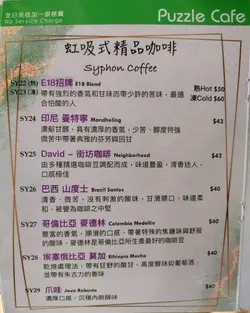 全日免收加一服務費
No Service Charge
Puzzle Cafe
虹吸式精品咖啡
Syphon Coffee
SY22 (熱) E18招牌 E18 Blend 熱Hot $50
SY23 (凍) 帶有強烈的香氣和甘味而帶少許的苦味，最適 凍Cold $60
合怕酸的人
SY24 印尼 曼特寧 Mandheling $43
濃郁甘醇，具有濃厚的香氣，少苦、醇度特強
微苦中帶著典雅的芬芳與回甘
SY25 David - 街坊咖啡 Neighborhood $43
由多種精選咖啡豆調配而成，味道豐盈，清香迷人，
口感極佳
SY26 巴西 山度士 Brazil Santos $40
清香，微苦，沒有刺激的酸味，甘薄順口，味道柔
和，被譽為咖啡之中堅
SY27 哥倫比亞 麥德林 Columbia Medellin $40
豐富的香氣，順滑的口感，帶著特殊的焦糖味與舒服
的酸味，麥德林是哥倫比亞所生產最好的咖啡豆
SY28 埃塞俄比亞 莫加 Ethiopia Mocha $40
乾燥處理法，帶有狂野的酸甘，高度醇味如葡萄酒，
並帶有朱古力的香氣
SY29 爪哇 Java Robusta $40
濃厚口感，沉穩內斂酸味